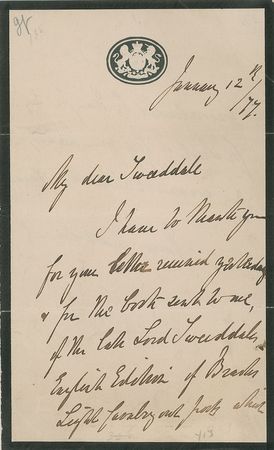 January 12th
/77.
My dear Tweeddale
I have to thank you
for your letter received yesterday
& for the book sent to me,
of the late Lord Tweeddale's
English Edition of
Light Cavalry out posts which